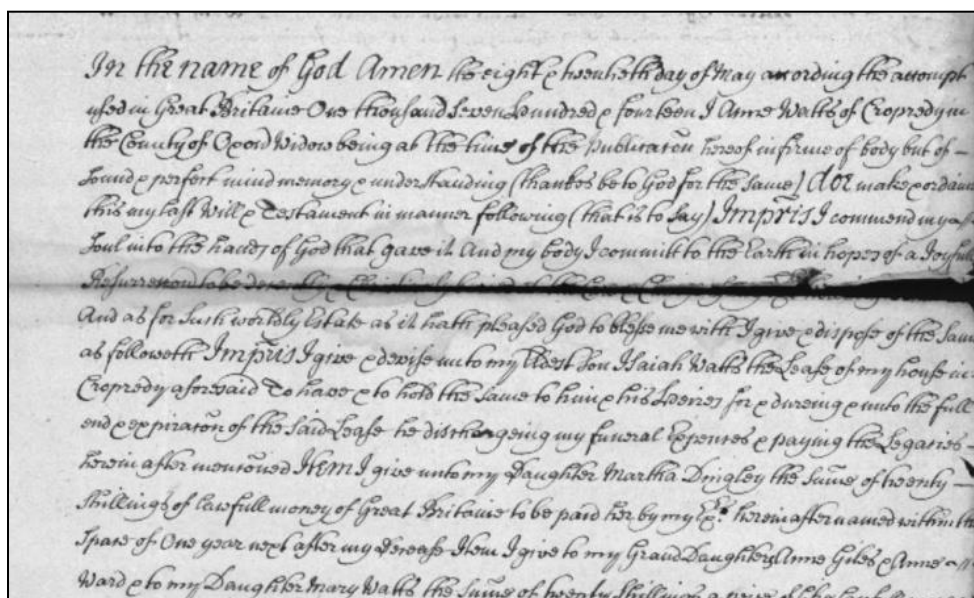 In the name of God Amen the eight & twentieth day of May according the accompt
used in Great Britaine One thousand Seven hundred & fourteen I Anne Watts of Cropredy in
the County of Oxon Widow being at the time of the Publicatōn hereof infirme of body but of –
sound & perfect mind memory & understanding (thankes be to God for the same) doe make & ordaine
this my last Will & Testament in manner following (that is to say) Impr̄is I commend my
soul into the hands of God that gave it And my body I committ to the Earth in hopes of a Joyfull
Resurrecon to be decently
And as for such worldly Estate as it hath pleased God to blesse me with I give & dispose of the Same
as followeth Impr̄is I give & devise unto my Eldest Son Isaiah Watts the Lease of my house in
Cropredy aforesaid To have & to hold the Same to him & his Heires for & dureing & unto the full
end & expiratōn of the said Lease he dischargeing my funeral Expences & paying the Legacies –
herein after mentioned Item I give unto my Daughter Martha Dingley the Sum̄e of twenty –
shillings of lawfull money of Great Britaine to be paid her by my Exr. herein after named within the
Space of One year next after my Decease Item I give to my Grand Daughters Anne Giles & Anne
Ward & to my Daughter Mary Watts the Sum̄e of twenty shillings a piece of like lawfull